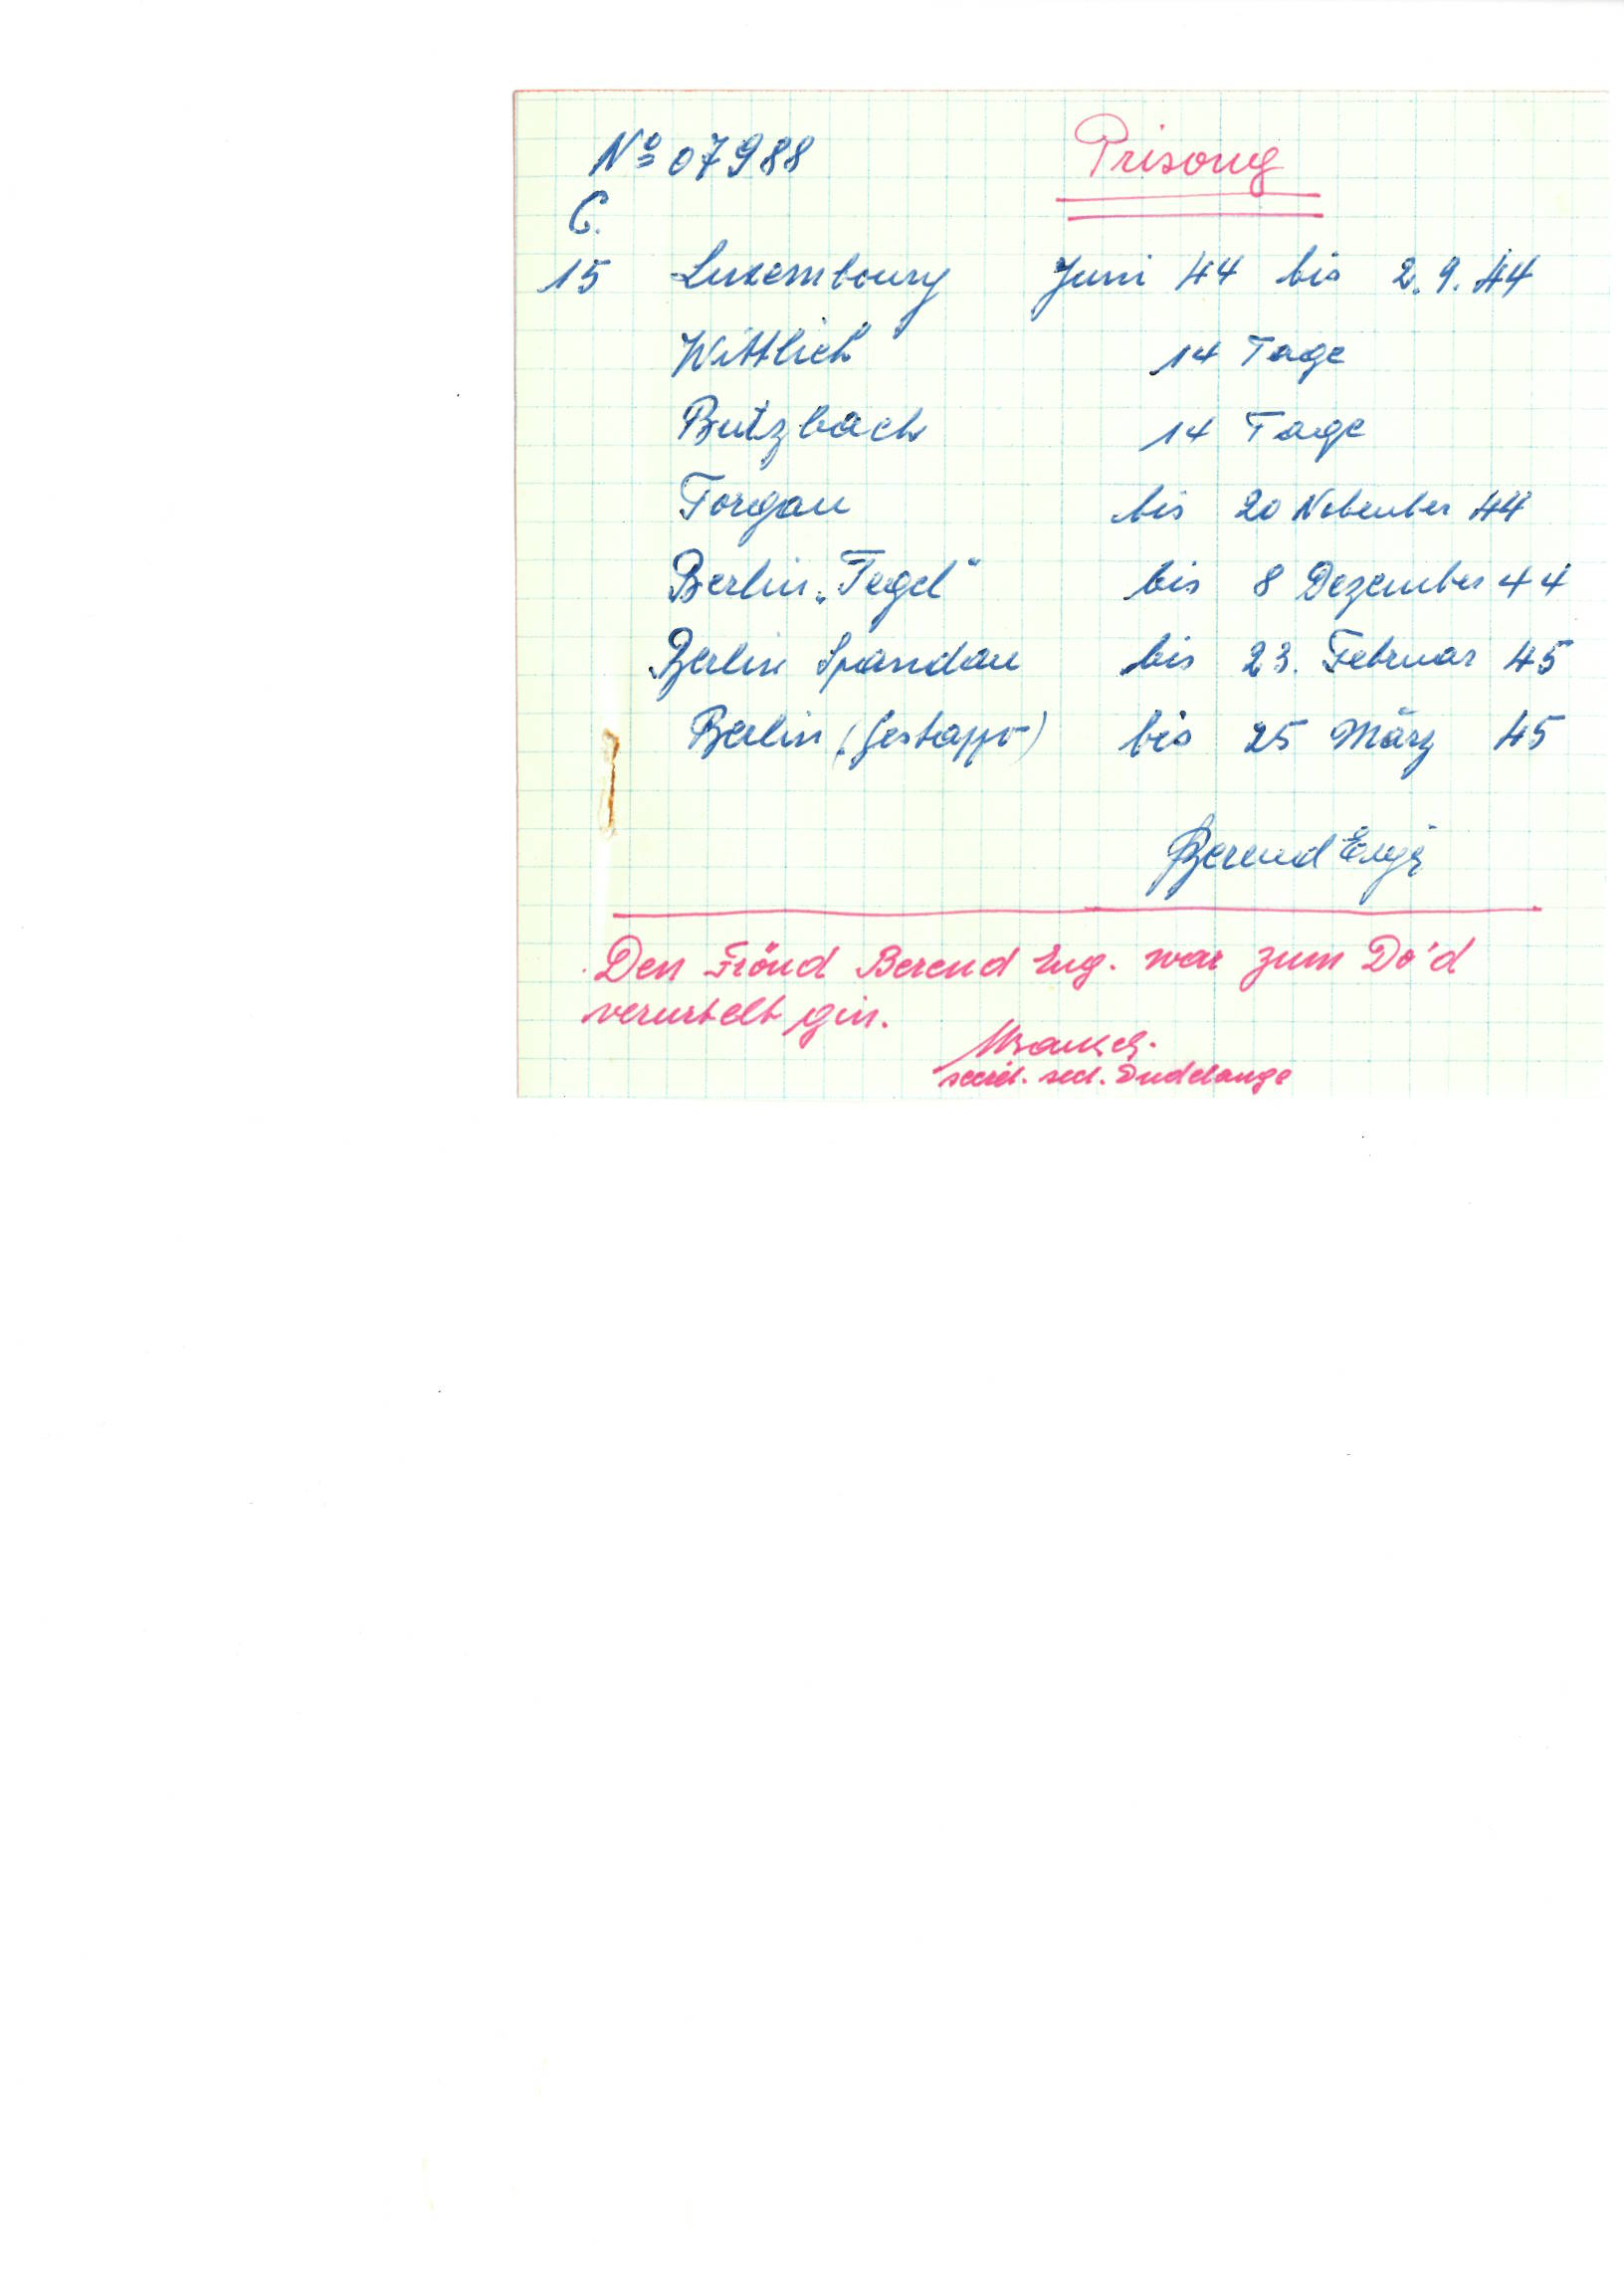 Nº 07988 Prisong
C.
15 Luxembourg Juni 44 bis 2.9.44
Wittlich 14 Tage
Butzbach 14 Tage
Torgau bis 20 November 44
Berlin „Tegel" bis 8 Dezember 44
Berlin Spandau bis 23. Februar 45
Berlin (Gestapo) bis 25 März 45
Berend Eugè
Den Frönd Berend Eug. war zum Do'd
verurtelt gin.
secrét. sect. Dudelange